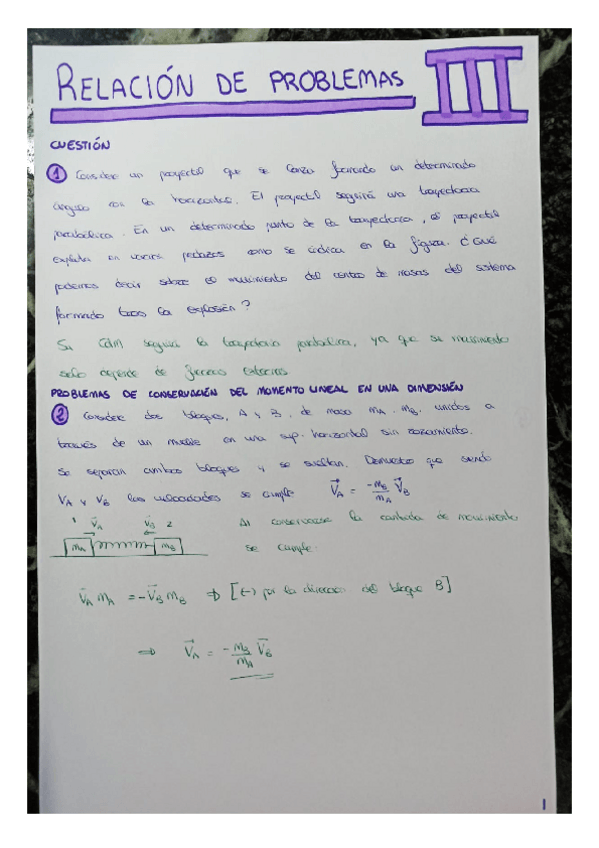 RELACIÓN DE PROBLEMAS III
CUESTIÓN
1 Considere un proyectil que se lanza formando un determinado
ángulo con la horizontal. El proyectil seguirá una trayectoria
parabólica. En un determinado punto de la trayectoria, el proyectil
explota en varios pedazos como se indica en la figura. ¿Qué
podemos decir sobre el movimiento del centro de masas del sistema
formado tras la explosión?
Su CdM seguirá la trayectoria parabólica, ya que su movimiento
solo depende de fuerzas exteriores
PROBLEMAS DE CONSERVACIÓN DEL MOMENTO LINEAL EN UNA DIMENSIÓN
2 Considere dos bloques, A y B, de masa mA, mB, unidos a
través de un muelle en una sup. horizontal sin rozamiento.
Se separan ambos bloques y se sueltan. Demuestre que siendo
VA y VB las velocidades se cumple V⃗A = -mB/mA V⃗B
1 V⃗A V⃗B 2
mA mB
Al conservarse la cantidad de movimiento
se cumple:
V⃗A mA = -V⃗B mB ⇒ [(-) por la dirección del bloque B]
⇒ V⃗A = -mB/mA V⃗B
1